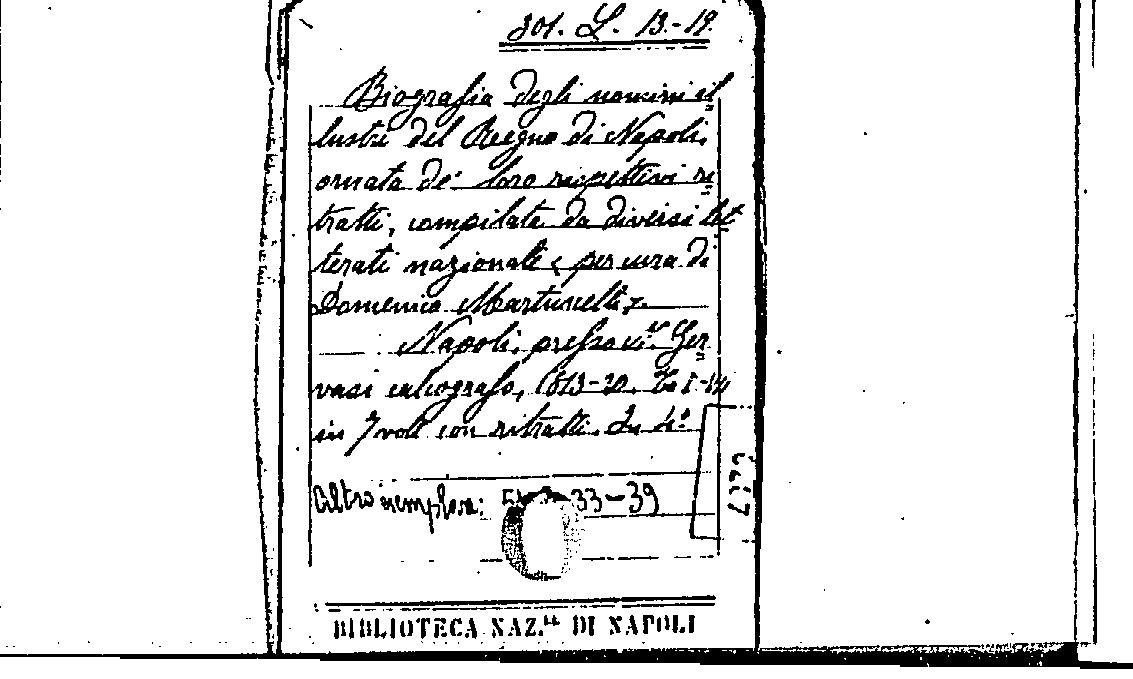 301. L. 13.-19.
Biografia degli uomini il
lustri del Regno di Napoli,
ornata de' loro rispettivi ri
tratti, compilata da diversi let
terati nazionali, per cura di
Domenico Martuscelli.
Napoli, presso Ger
vasi calcografo, 1813-20. T. 1-14
in 7 voll con ritratti. In 4°
Altro esemplare: 33-39
BIBLIOTECA NAZ.LE DI NAPOLI